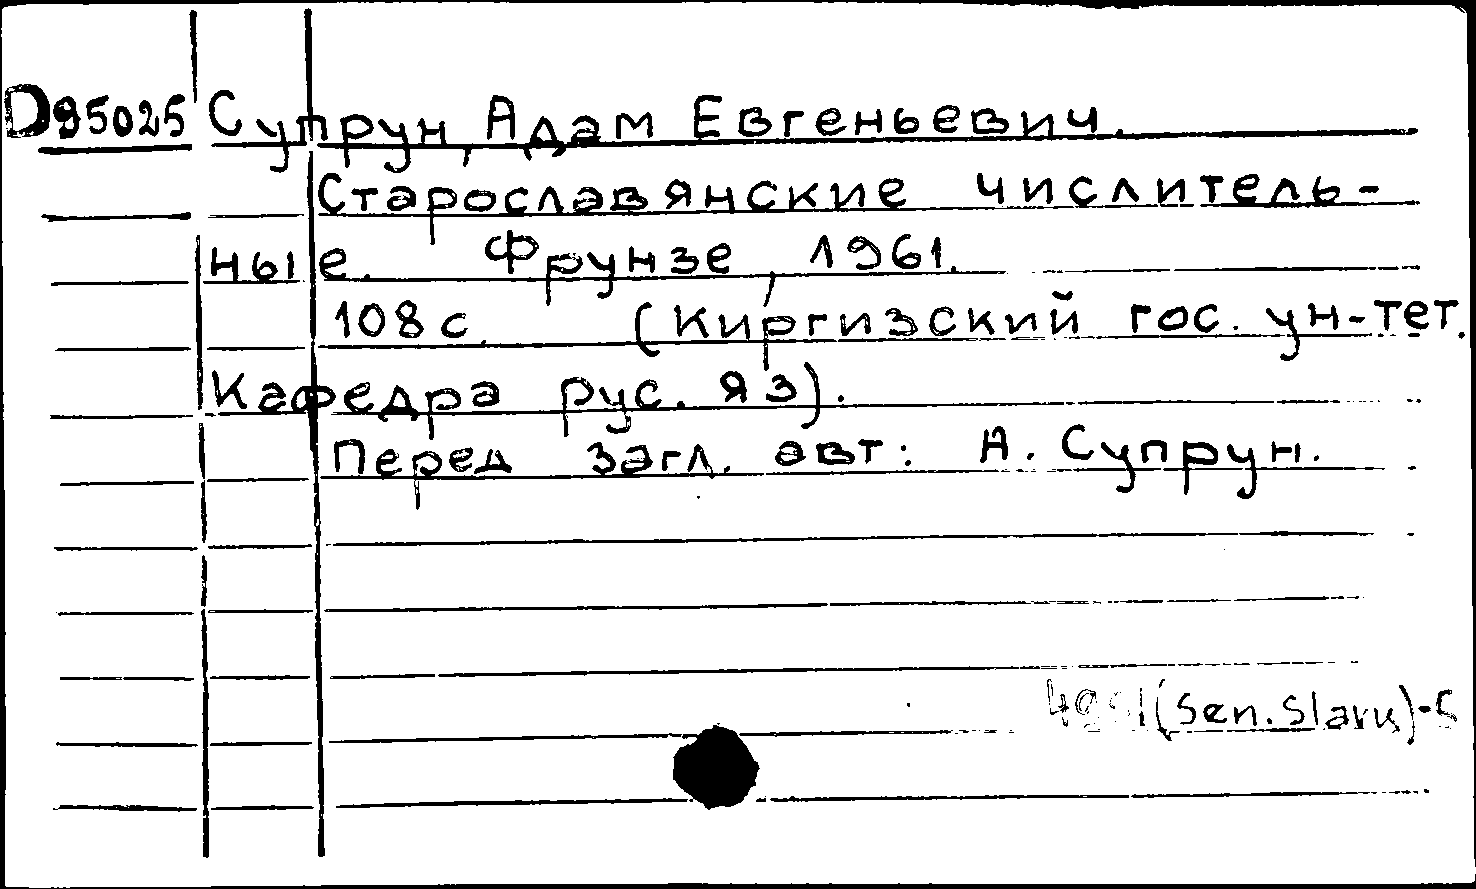 D95025 Супрун, Адам Евгеньевич.
Старославянские числитель-
ные. Фрунзе, 1961.
108 с. (Киргизский гос. ун-тет.
Кафедра рус. яз).
Перед загл. авт: А. Супрун.
(Sen. Slavu)-S